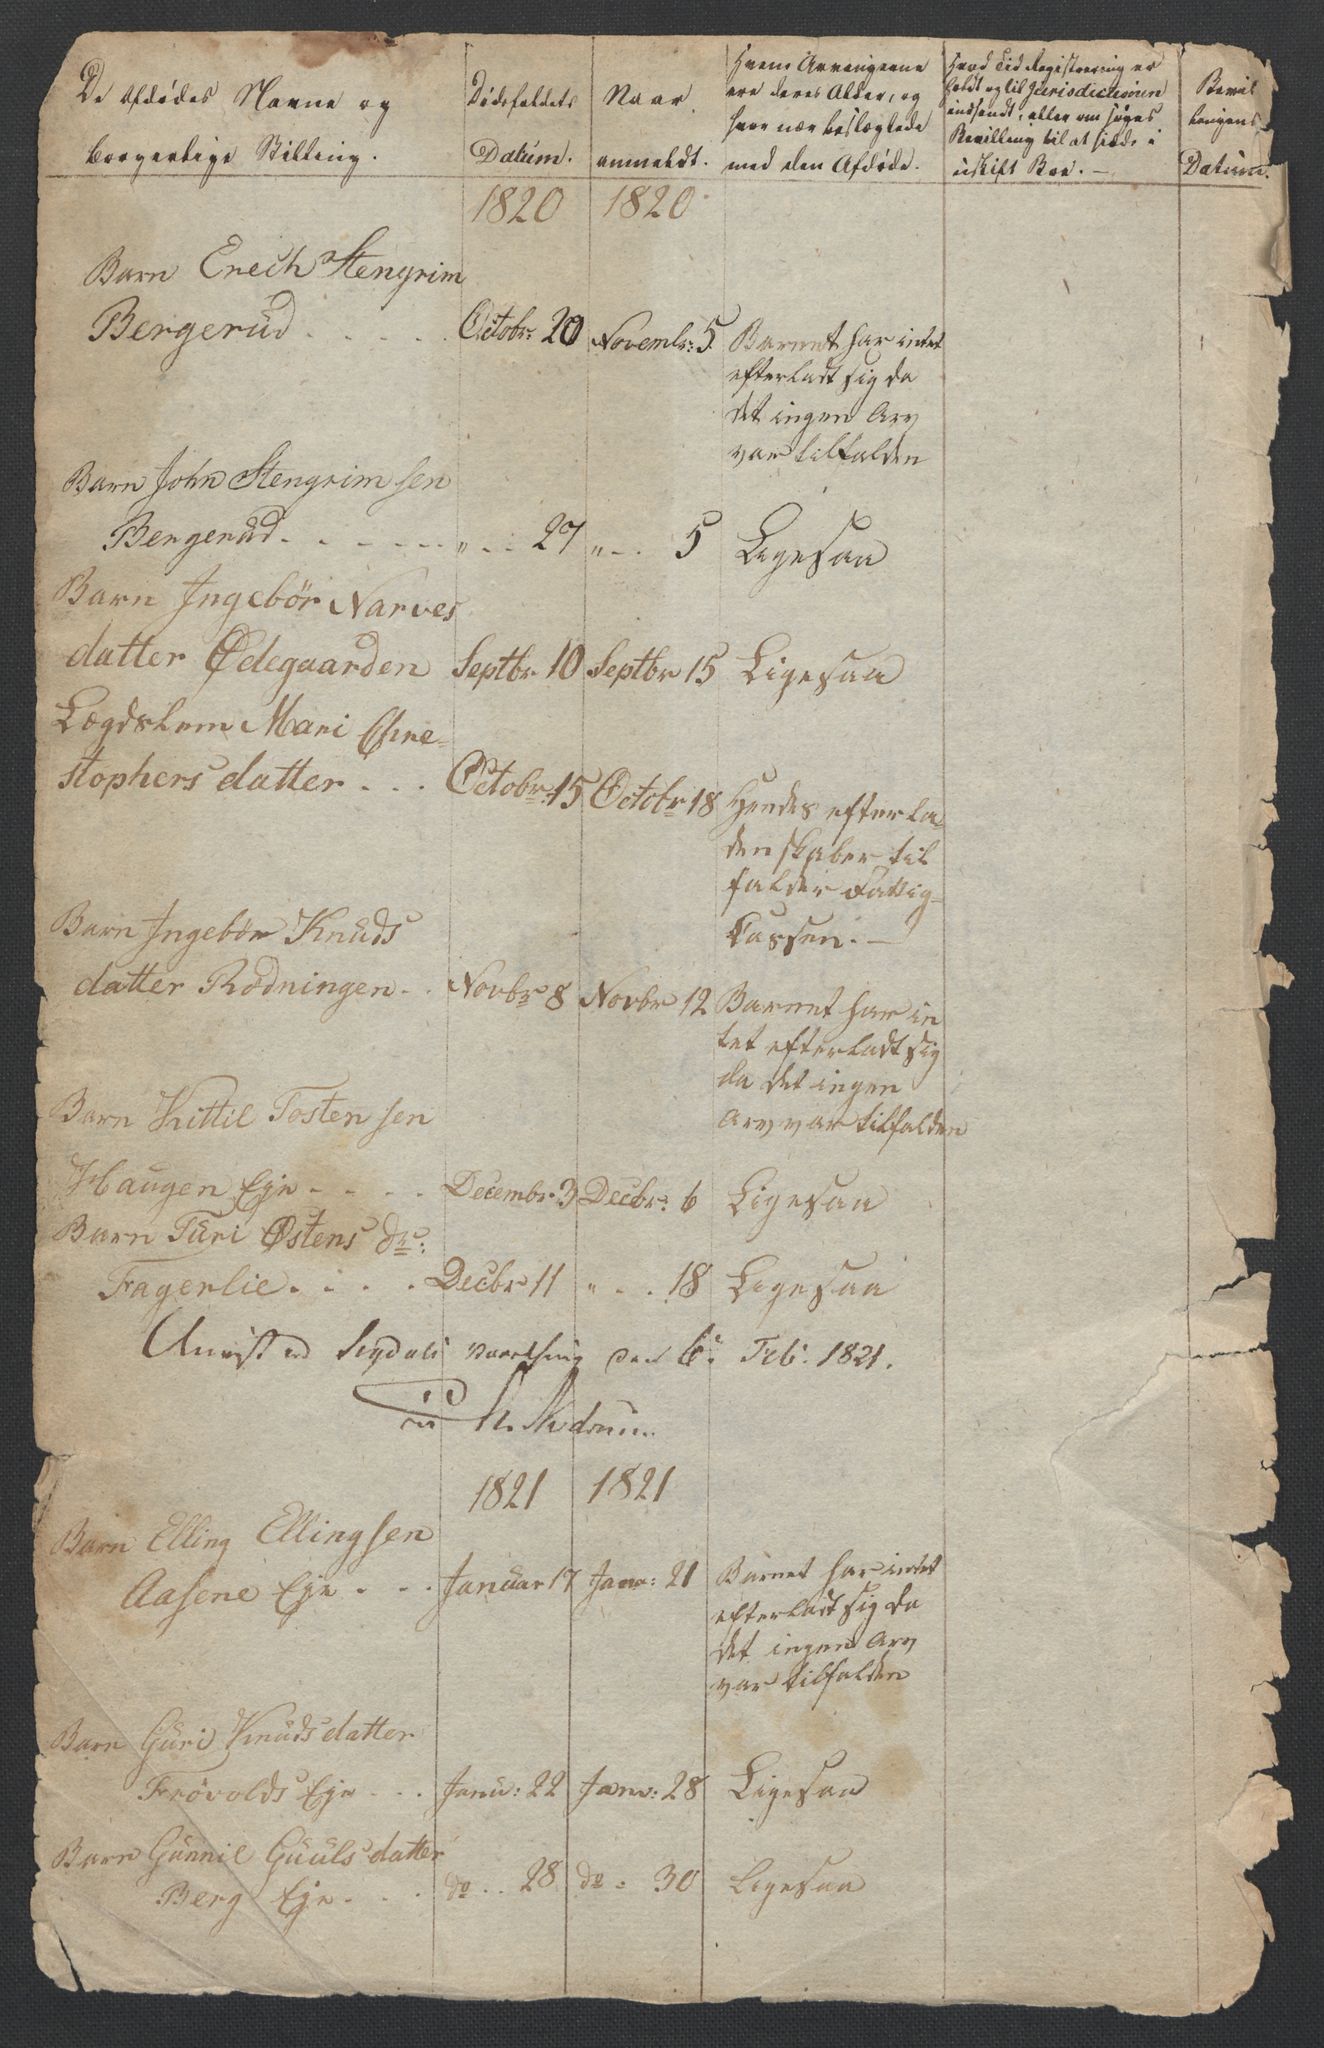 De Afdødes Navne og
borgerlige Stilling.
Dødsfaldets
Datum.
Naar
anmeldt.
Hvem Arvingerne
ere deres Alder, og
hvor nær beslægtede
med den Afdøde.
Hvad Tid Registrering er
holdt og til Jurisdictionen
indsendt, eller om søges
Bevilling til at sidde i
uskift Boe. —
Bevil
lingens
Datum.
1820 1820
Barn Erech Stengrim
Bergerud . . . . . Octobr: 20 Novembr: 5. Barnet har intet
efterladt sig da
det ingen Arv
var tilfalden
Barn John Stengrimsen
Bergerud. . . . . . „ . . 27 „ . . 5 Ligesaa
Barn Ingebør Narves
datter Ødegaarden Septbr 10 Septbr 15 Ligesaa
Lægdslem Mari Chre-
stophersdatter . . . Octobr: 15 Octobr 18 Hendes efterla-
denskaber til
falder Fattig-
Cassen. —
Barn Ingebør Knuds
datter Rødningen . . Novbr 8 Novbr 12 Barnet har in
tet efterladt sig
da det ingen
Arv var tilfalden
Barn Kittil Tostensen
Haugen Eje . . . . Decembr 3 Decbr: 6 Ligesaa
Barn Turi Østens dr:
Fagerlie . . . . Decbr 11 „ . . 18 Ligesaa
Anvist ved Sigdals Vaarthing den 6: Feb: 1821.
1821 1821
Barn Elling Ellingsen
Aasene Eje . . . Januar 17 Janu: 21 Barnet har intet
efterladt sig da
det ingen Arv
var tilfalden
Barn Guri Knudsdatter
Frøvolds Eje . . . Janu: 22 Janu: 28 Ligesaa
Barn Gunnil Guulsdatter
Berg Eje . . . do . . 28 do : 30 Ligesaa